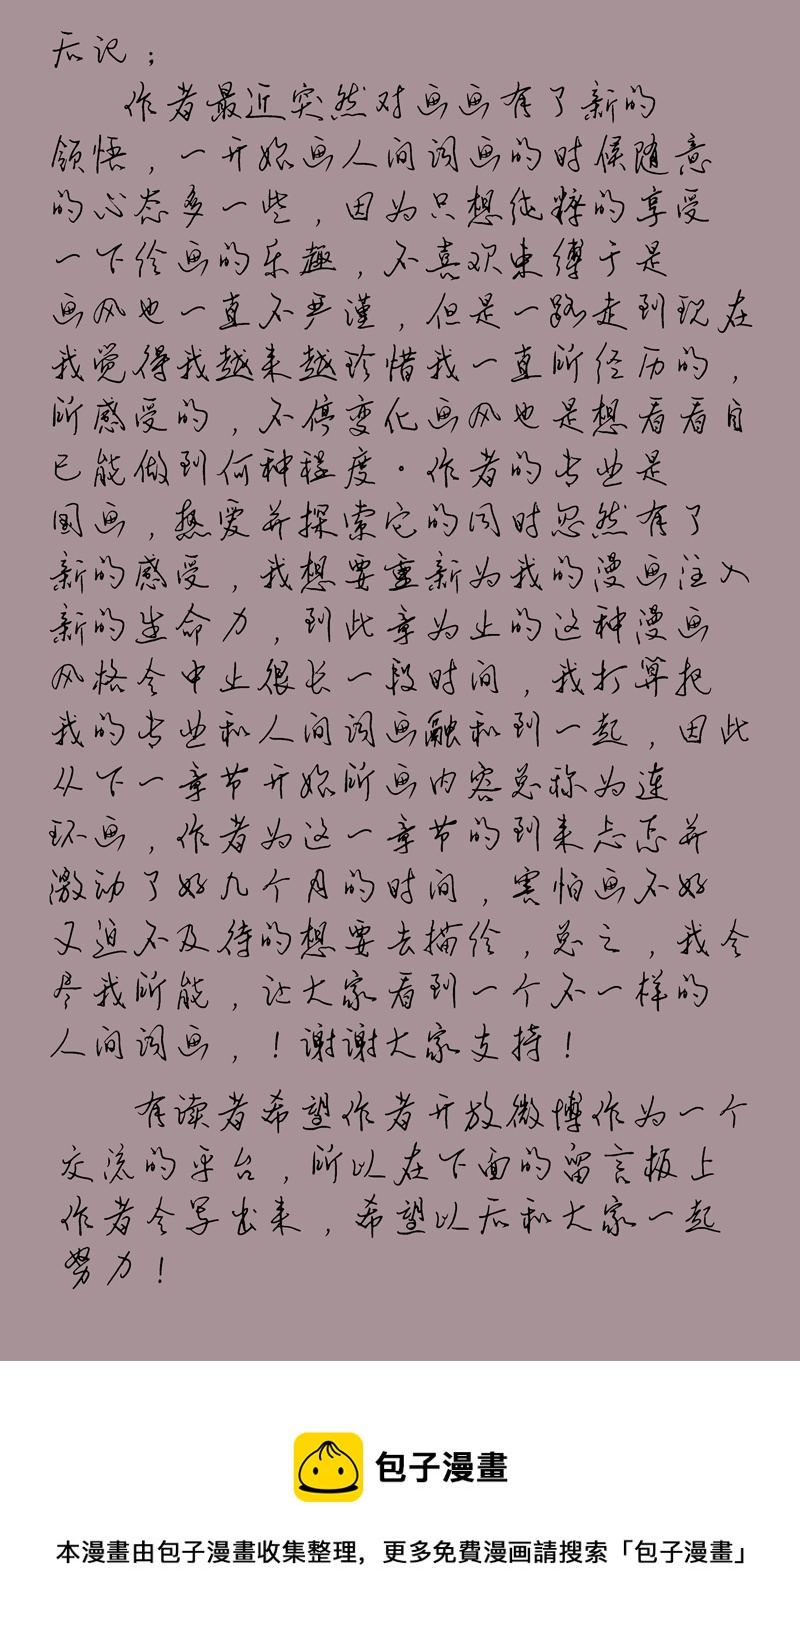 后记；
作者最近突然对画画有了新的
领悟，一开始画人间词画的时候随意
的心态多一些，因为只想纯粹的享受
一下绘画的乐趣，不喜欢束缚于是
画风也一直不严谨，但是一路走到现在
我觉得我越来越珍惜我一直所经历的，
所感受的，不停变化画风也是想看看自
己能做到何种程度。作者的专业是
国画，热爱并探索它的同时忽然有了
新的感受，我想要重新为我的漫画注入
新的生命力，到此章为止的这种漫画
风格会中止很长一段时间，我打算把
我的专业和人间词画融和到一起，因此
从下一章节开始所画内容总称为连
环画，作者为这一章节的到来忐忑并
激动了好几个月的时间，害怕画不好
又迫不及待的想要去描绘，总之，我会
尽我所能，让大家看到一个不一样的
人间词画，！谢谢大家支持！
有读者希望作者开放微博作为一个
交流的平台，所以在下面的留言板上
作者会写出来，希望以后和大家一起
努力！
包子漫畫
本漫畫由包子漫畫收集整理，更多免費漫画請搜索「包子漫畫」